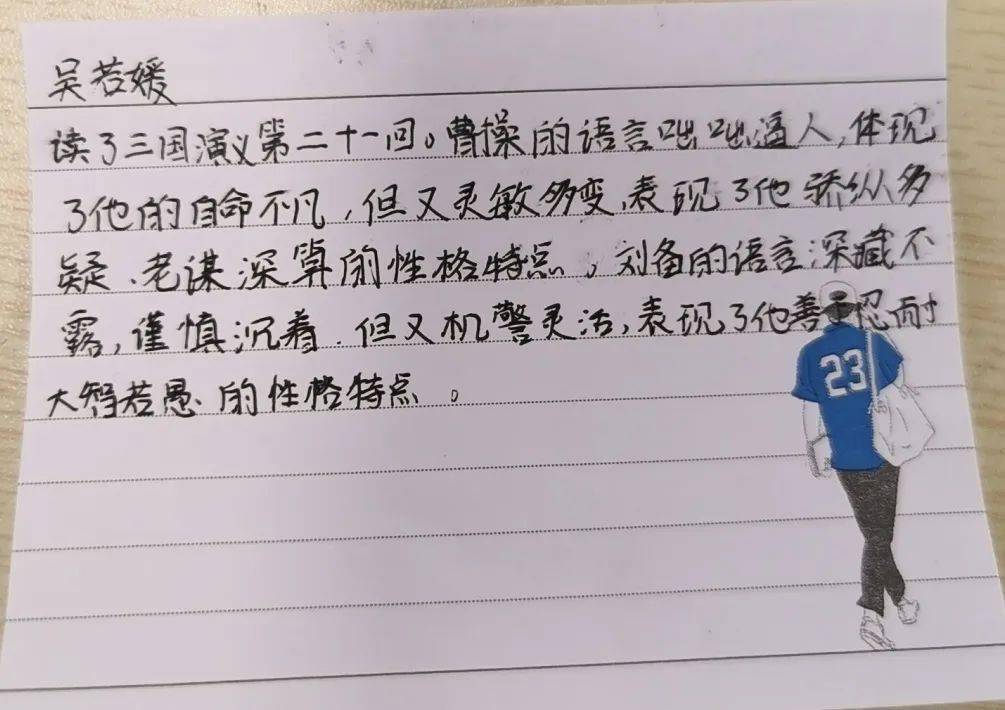 吴若媛
读了三国演义第二十一回。曹操的语言咄咄逼人,体现
了他的自命不凡,但又灵敏多变,表现了他骄纵多
疑、老谋深算的性格特点。刘备的语言深藏不
露,谨慎沉着.但又机警灵活,表现了他善于忍耐
大智若愚的性格特点。
23